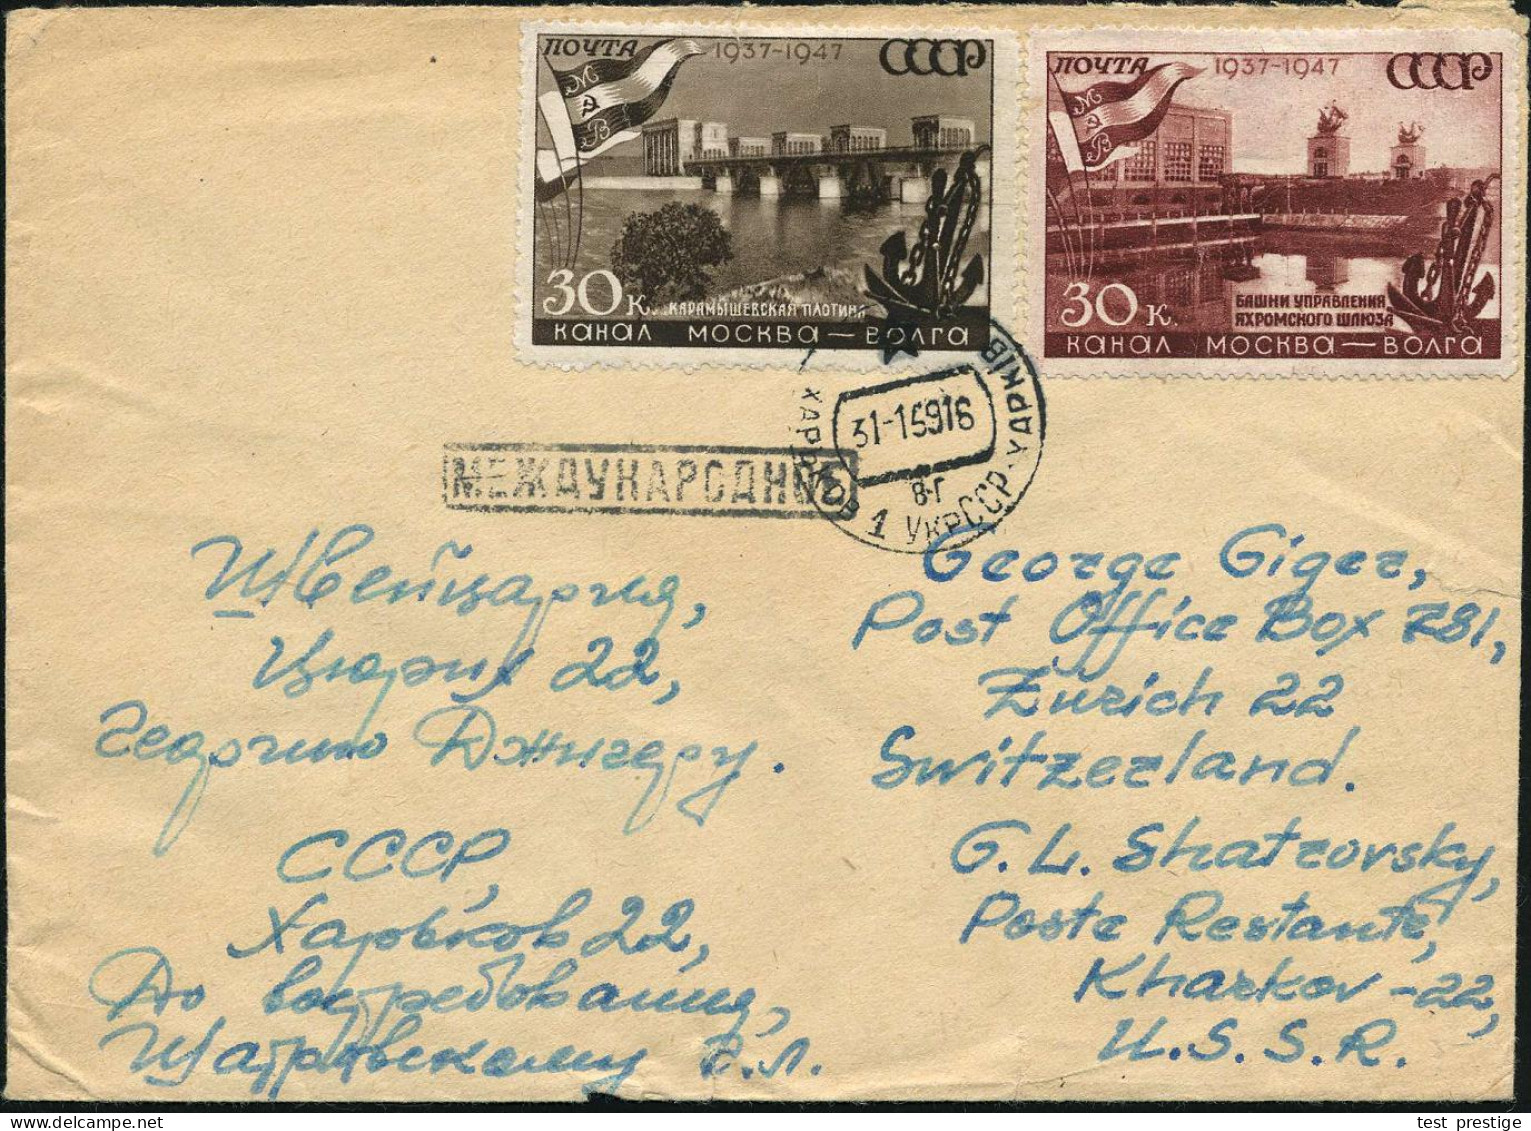 ПОЧТА 1937-1947 СССР
М
В
30 К. КАРАМЫШЕВСКАЯ ПЛОТИНА
КАНАЛ МОСКВА — ВОЛГА
ПОЧТА 1937-1947 СССР
М
В
30 К. БАШНИ УПРАВЛЕНИЯ
ЯХРОМСКОГО ШЛЮЗА
КАНАЛ МОСКВА — ВОЛГА
МЕЖДУНАРОДНОЕ
ХАРЬКОВ 1 УКРССР · ХАРКІВ
31-15916
В-Г
Швейцария,
Цюрих 22,
Георгию Джигеру.
СССР,
Харьков 22,
До востребования,
Шатровскому Г. Л.
George Giger,
Post Office Box 781,
Zurich 22
Switzerland.
G. L. Shatrovsky,
Poste Restante,
Kharkov-22,
U. S. S. R.
test prestige